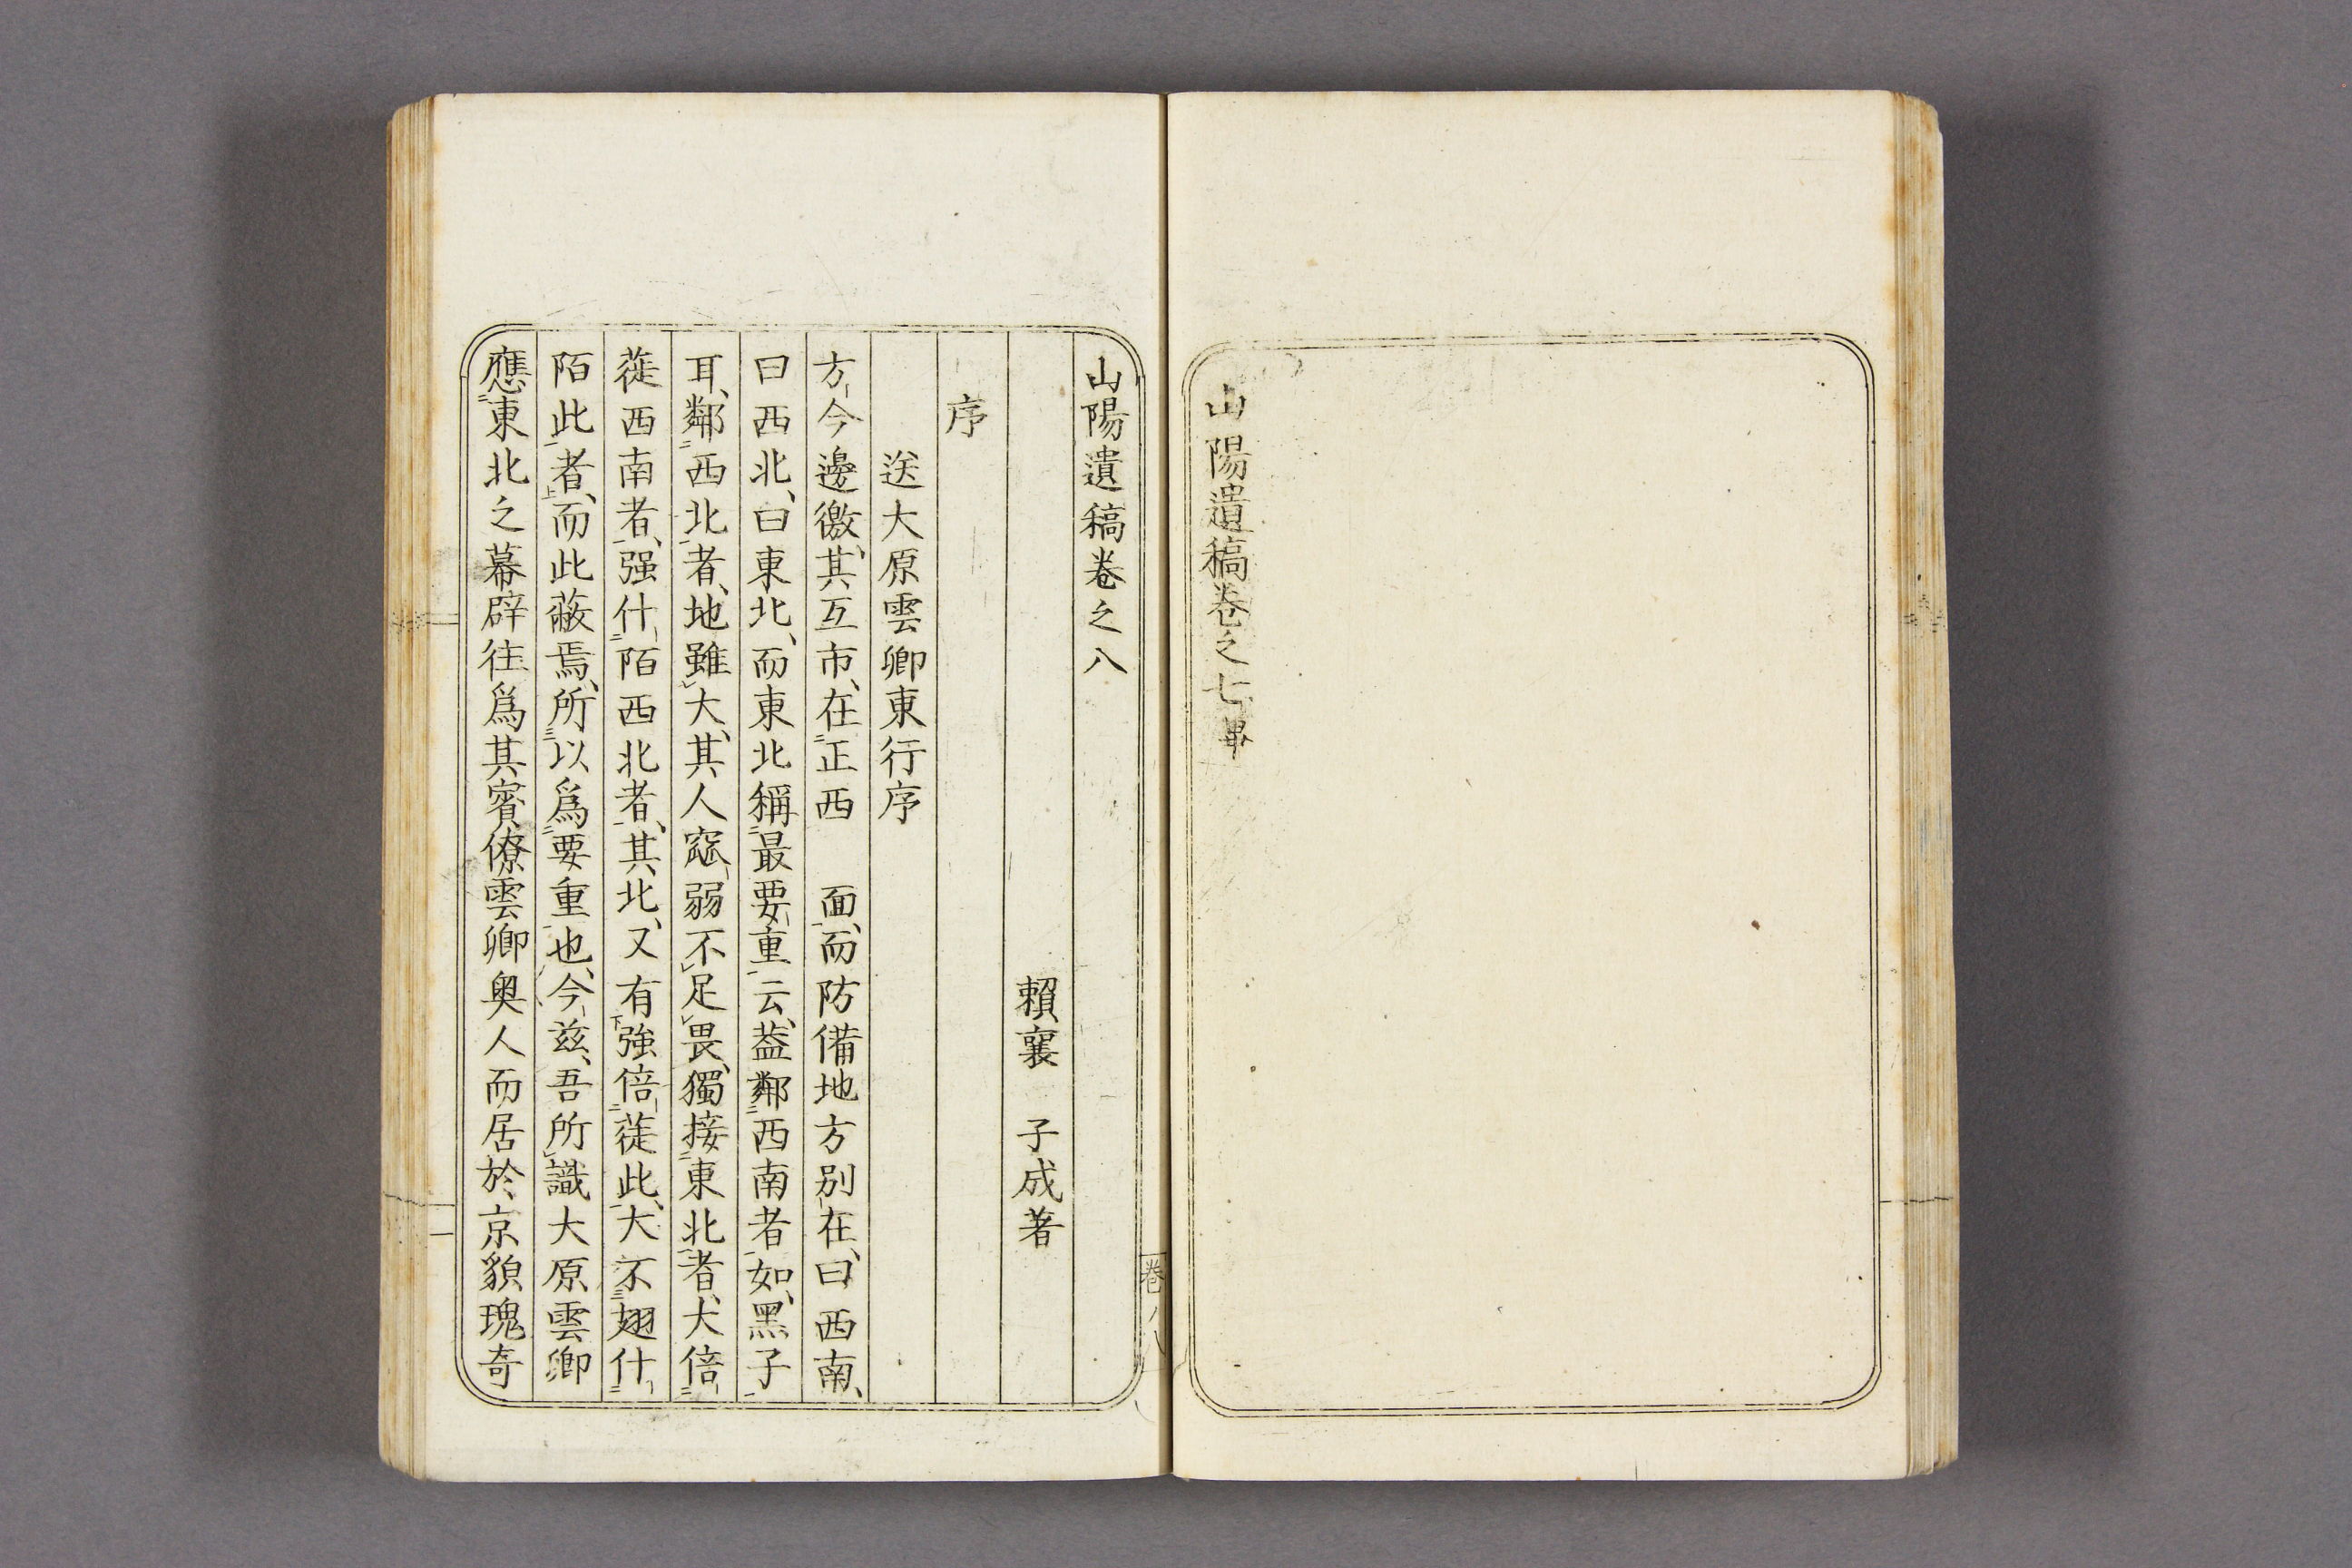 山陽遺稿卷之七畢
山陽遺稿卷之八
賴襄　子成著
序
送大原雲卿東行序
方今邊徼、其互市、在正西　面、而防備地方別在、曰西南、
曰西北、曰東北、而東北稱最要重云、葢鄰西南者、如黑子
耳、鄰西北者、地雖大、其人寙弱不足畏、獨接東北者、大倍
蓰西南者、强什陌西北者、其北、又有強倍蓰此、大不翅什
陌此者、而此蔽焉、所以爲要重也、今茲、吾所識大原雲卿
應東北之幕辟往爲其賓僚雲卿奥人而居於京貌瑰奇
卷八
一